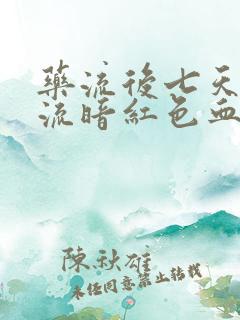 藥流後七天
流暗紅色血
陳秋雄
未經同意禁止轉載